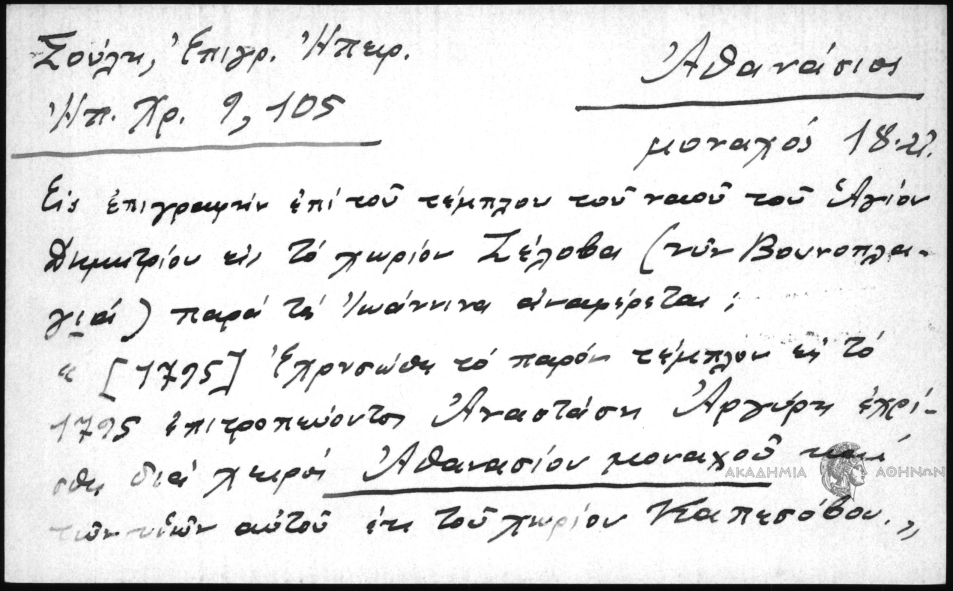 Σούλη, Ἐπιγρ. Ἠπειρ.
Ἠπ. Χρ. 9, 105
Ἀθανάσιος
μοναχός 18.
Εἰς ἐπιγραφήν ἐπί τοῦ τέμπλου τοῦ ναοῦ τοῦ Ἁγίου
Δημητρίου εἰς τό χωρίον Σέλοβα (νῦν Βουνοπλα-
γιά) παρά τά Ἰωάννινα ἀναφέρεται:
« [1795] Ἐχρυσώθη τό παρόν τέμπλον εἰς τό
1795 ἐπιτροπεύοντος Ἀναστάση Ἀργύρη ἐχρί-
σθη διά χειρός Ἀθανασίου μοναχοῦ καί
τῶν υἱῶν αὐτοῦ ἐκ τοῦ χωρίου Καπεσόβου.»
ΑΚΑΔΗΜΙΑ ΑΘΗΝΩΝ